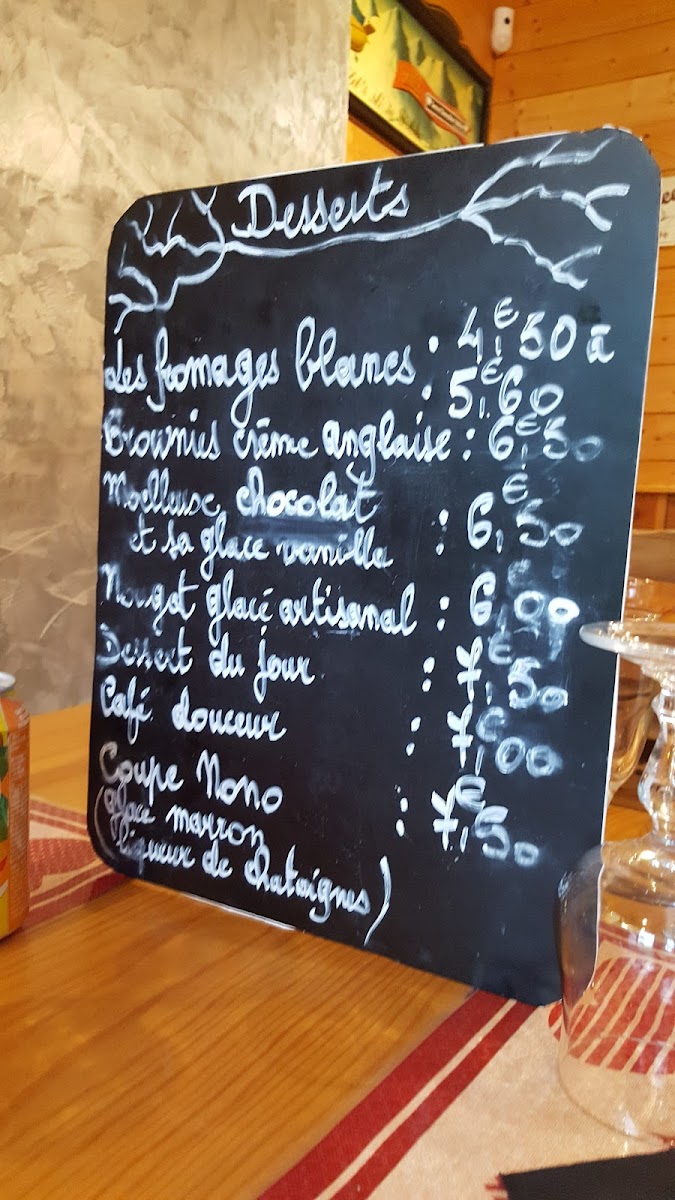 Desserts
Les fromages blancs : 4,€50 à
: 5,€60
Brownies crème anglaise : 6,€50
Moelleux chocolat
et sa glace vanille : 6,€50
Nougat glacé artisanal : 6,€00
Dessert du jour : 7,€50
Café douceur : 7,€00
Coupe Nono : 7,€50
(glace marron
liqueur de chataignes)